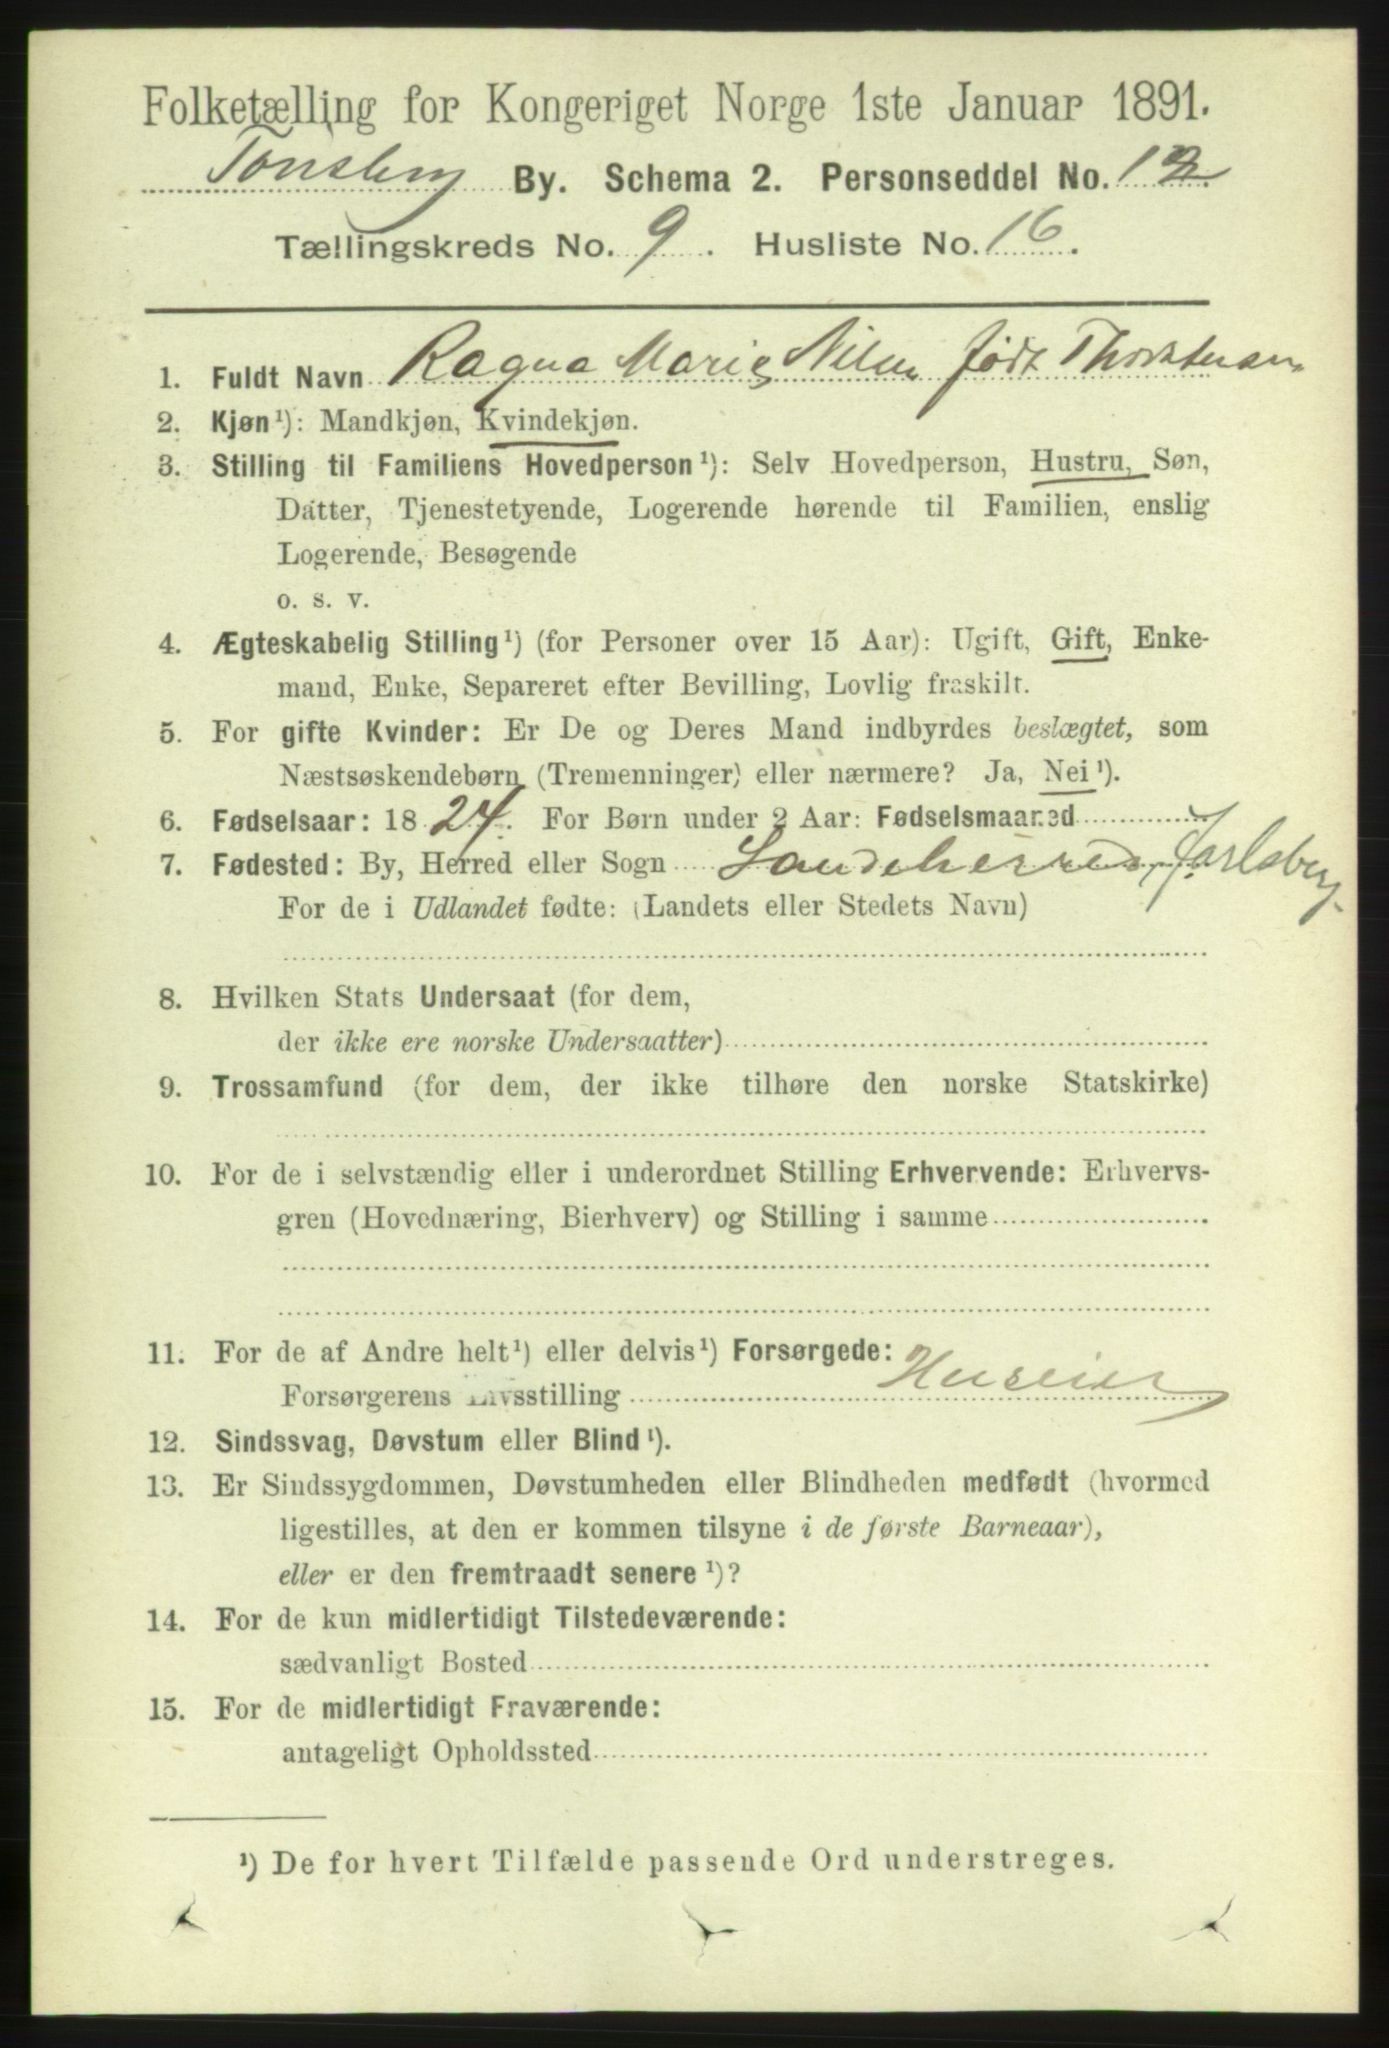 Folketælling for Kongeriget Norge 1ste Januar 1891.
Tønsberg By. Schema 2. Personseddel No. 12
Tællingskreds No. 9. Husliste No. 16.
1. Fuldt Navn Ragna Marie Nilsen født Thorstensen
2. Kjøn¹): Mandkjøn, Kvindekjøn.
3. Stilling til Familiens Hovedperson¹): Selv Hovedperson, Hustru, Søn,
Datter, Tjenestetyende, Logerende hørende til Familien, enslig
Logerende, Besøgende
o. s. v.
4. Ægteskabelig Stilling¹) (for Personer over 15 Aar): Ugift, Gift, Enke-
mand, Enke, Separeret efter Bevilling, Lovlig fraskilt.
5. For gifte Kvinder: Er De og Deres Mand indbyrdes beslægtet, som
Næstsøskendebørn (Tremenninger) eller nærmere? Ja, Nei¹).
6. Fødselsaar: 1824. For Børn under 2 Aar: Fødselsmaaned
7. Fødested: By, Herred eller Sogn Sandeherred, Jarlsberg.
For de i Udlandet fødte: (Landets eller Stedets Navn)
8. Hvilken Stats Undersaat (for dem,
der ikke ere norske Undersaatter)
9. Trossamfund (for dem, der ikke tilhøre den norske Statskirke)
10. For de i selvstændig eller i underordnet Stilling Erhvervende: Erhvervs-
gren (Hovednæring, Bierhverv) og Stilling i samme
11. For de af Andre helt¹) eller delvis¹) Forsørgede:
Forsørgerens Livsstilling Huseier
12. Sindssvag, Døvstum eller Blind¹).
13. Er Sindssygdommen, Døvstumheden eller Blindheden medfødt (hvormed
ligestilles, at den er kommen tilsyne i de første Barneaar),
eller er den fremtraadt senere¹)?
14. For de kun midlertidigt Tilstedeværende:
sædvanligt Bosted
15. For de midlertidigt Fraværende:
antageligt Opholdssted
¹) De for hvert Tilfælde passende Ord understreges.